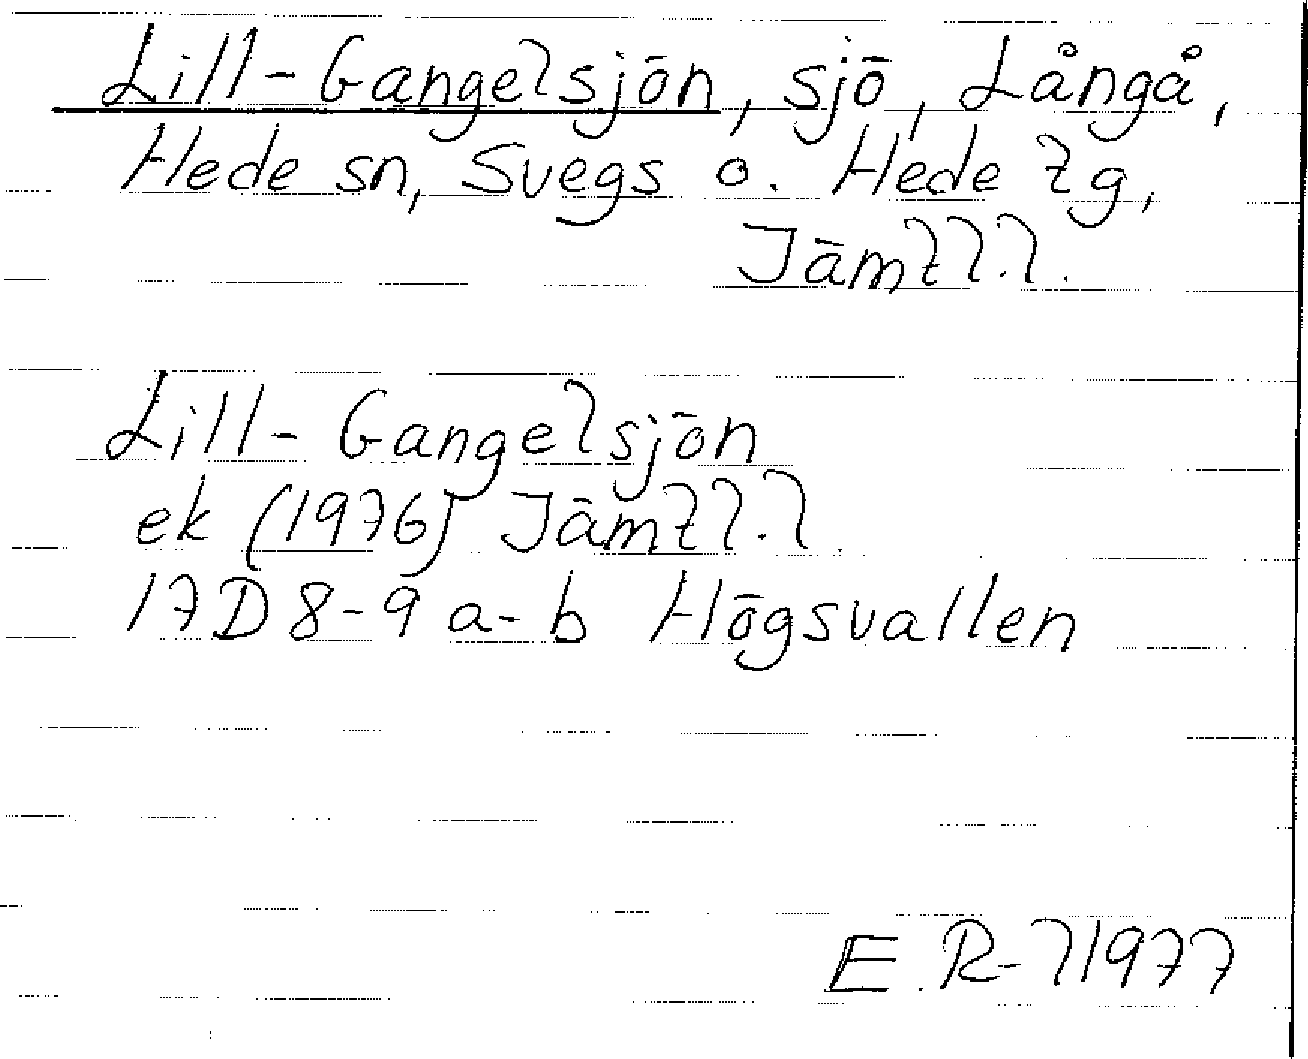 Lill-Gangelsjön, sjö, Långå,
Hede sn, Svegs o. Hede tg,
Jämtl.l.
Lill-Gangelsjön
ek (1976) Jämtl.l.
17D 8-9 a-b Högsvallen
E.R-l 1977